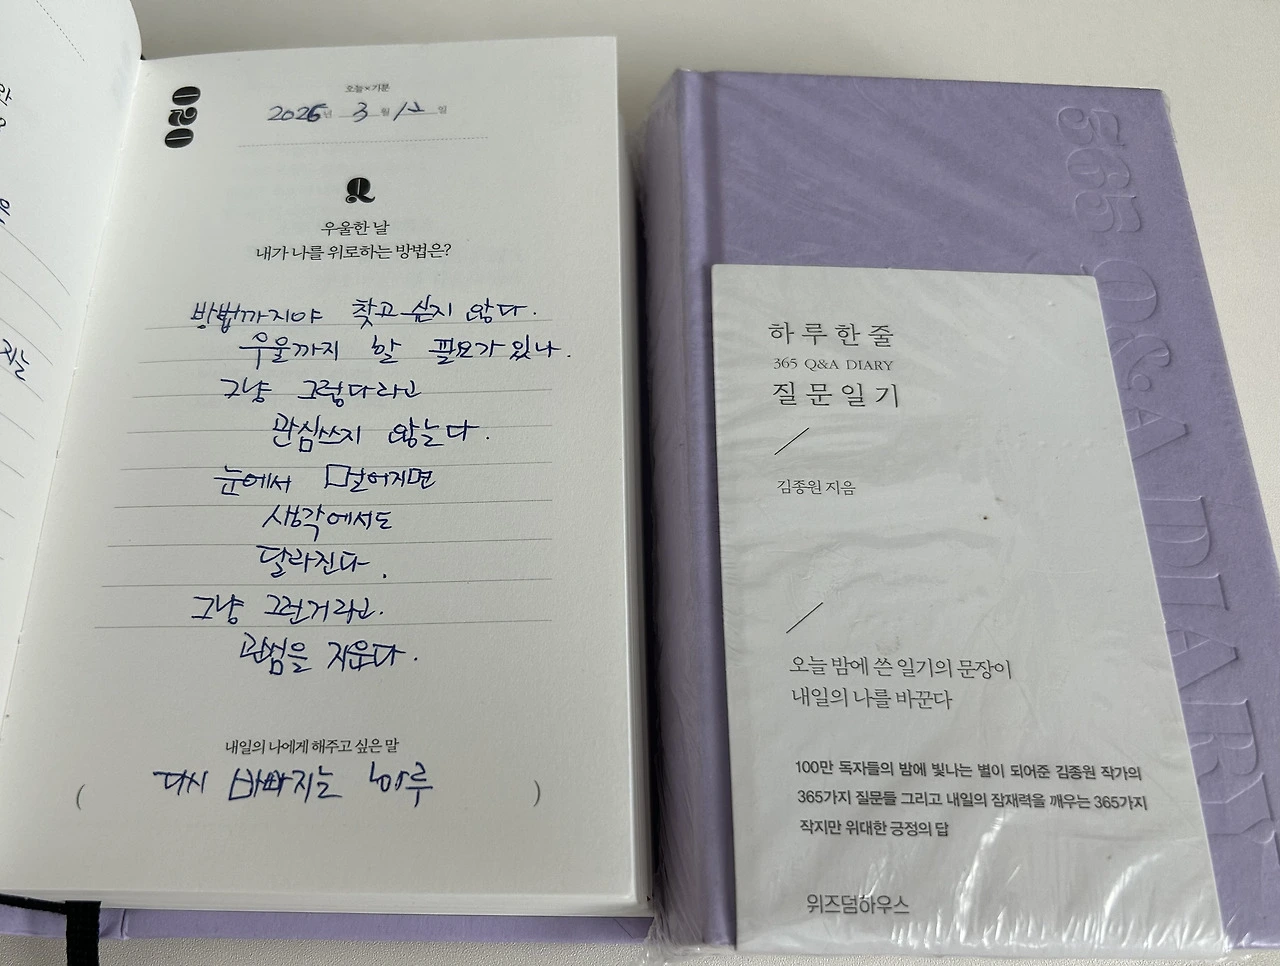 020
오늘×기분
2026년 3월 12일
Q
우울한 날
내가 나를 위로하는 방법은?
방법까지야 찾고 싶지 않다.
우울까지 할 필요가 있나.
그냥 그렇다라고
관심쓰지 않는다.
눈에서 멀어지면
생각에서도
달라진다.
그냥 그런거라고.
관심을 지운다.
내일의 나에게 해주고 싶은 말
( 다시 바빠지는 하루 )
365 Q&A DIARY
하루한줄
365 Q&A DIARY
질문일기
김종원 지음
오늘 밤에 쓴 일기의 문장이
내일의 나를 바꾼다
100만 독자들의 밤에 빛나는 별이 되어준 김종원 작가의
365가지 질문들 그리고 내일의 잠재력을 깨우는 365가지
작지만 위대한 긍정의 답
위즈덤하우스